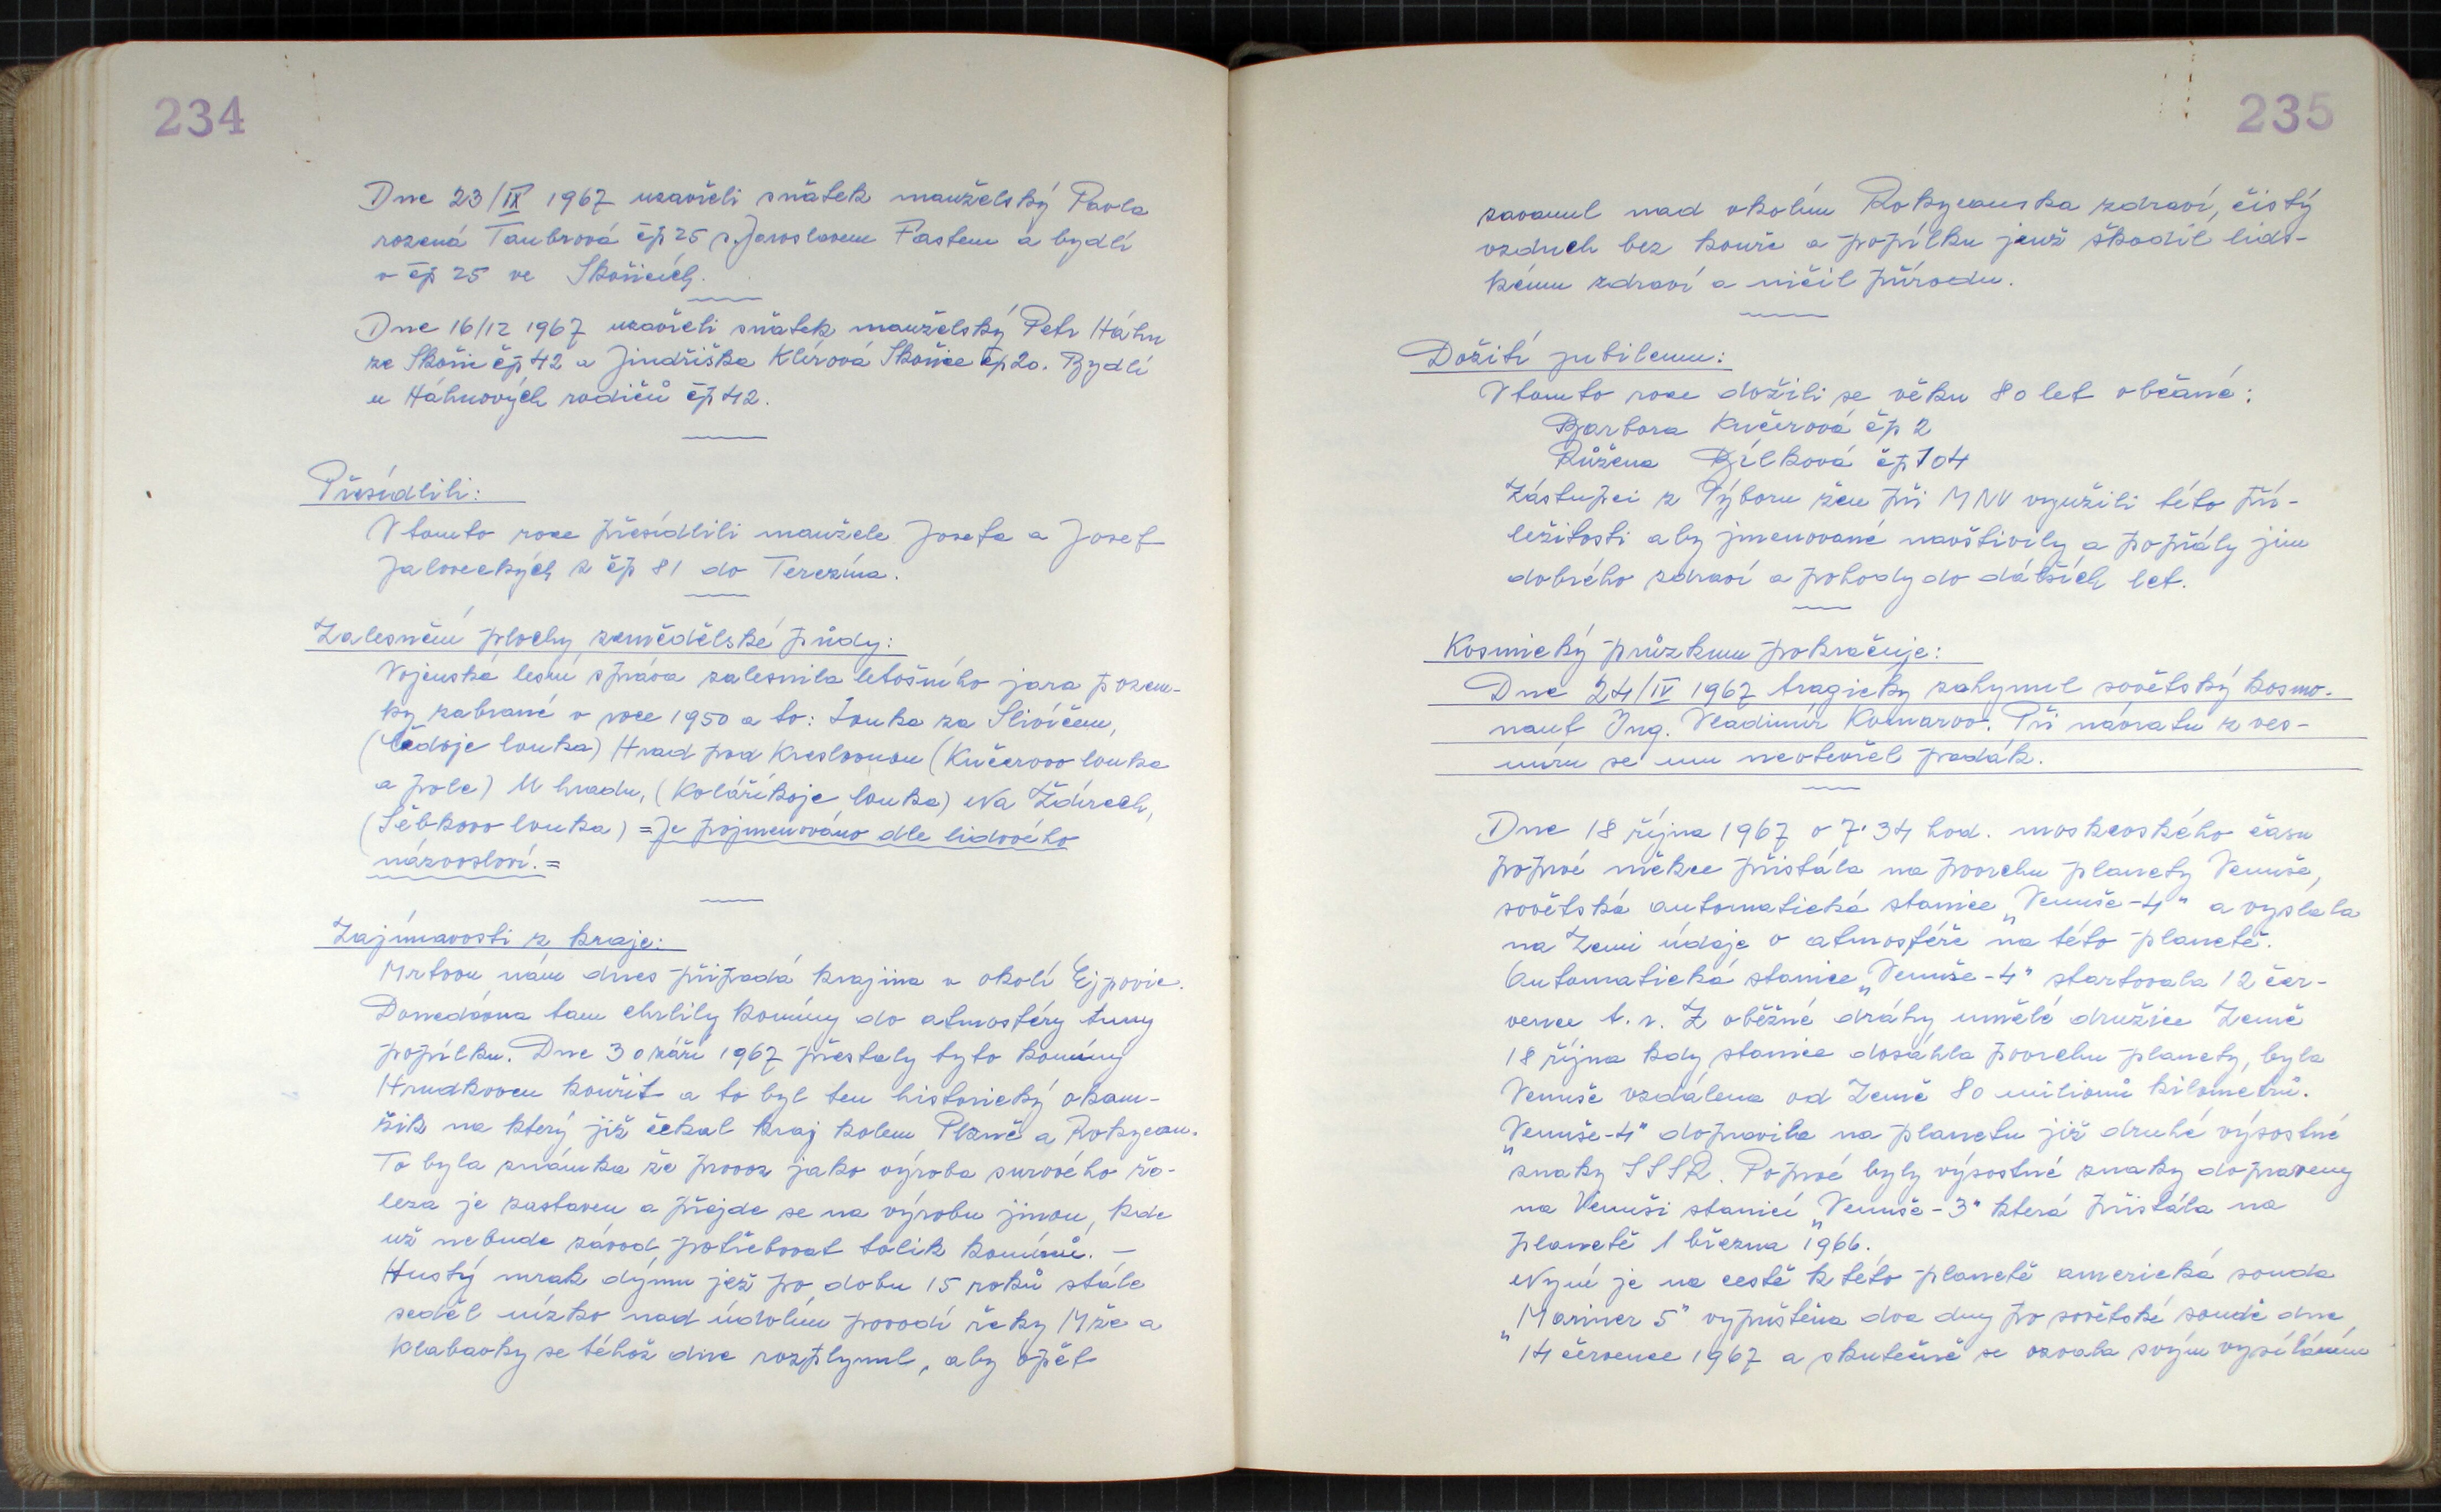 234
Dne 23/IX 1967 uzavřeli sňatek manželský Pavla
rozená Taubrová čp 25 s Jaroslavem Fastem a bydlí
v čp 25 ve Skořicích.
Dne 16/12 1967 uzavřeli sňatek manželský Petr Háhn
ze Skořic čp 42 a Jindřiška Klírová Skořice čp 20. Bydlí
u Háhnových rodičů čp 42.
Přesídlili:
V tomto roce přesídlili manžele Josefa a Josef
Jaloveckých z čp 81 do Terezína.
Zalesnění plochy zemědělské půdy:
Vojenská lesní správa zalesnila letošního jara pozem-
ky zabrané v roce 1950 a to: Louka za Slivíčem,
louka) Hrad pod Kreslovnou (Kučerovo louka
a pole) U hradu, (Koláříkoje louka) Na Ždírech,
(Sébkovo louka) = Je pojmenováno dle lidového
názvosloví. =
Zajímavosti z kraje:
Mrtvou nám dnes připadá krajina v okolí Ejpovic.
Donedávna tam chrlily komíny do atmosféry tuny
popílku. Dne 30 září 1967 přestaly tyto komíny
Hrudkoven kouřit a to byl ten historický okam-
žik na který již čekal kraj kolem Plzně a Rokycan.
To byla známka že provoz jako výroba surového že-
leza je zastaven a přejde se na výrobu jinou, kde
už nebude závod potřebovat tolik komínů. —
Hustý mrak dýmu jež po dobu 15 roků stále
seděl nízko nad údolím povodí řeky Mže a
Klabavky se téhož dne rozplynul, aby opět
235
zavanul nad okolím Rokycanska zdraví, čistý
vzduch bez kouře a popílku jenž škodil lids-
kému zdraví a ničil přírodu.
Dožití jubileum:
V tomto roce dožili se věku 80 let občané:
Barbora Kučerová čp 2
Růžena Bílková čp 104
Zástupci z Výboru žen při MNV využili této pří-
ležitosti aby jmenované navštívily a popřály jim
dobrého zdraví a pohody do dalších let.
Kosmický průzkum pokračuje:
Dne 24/IV 1967 tragicky zahynul sovětský kosmo-
naut Ing. Vladimír Komarov. Při návratu z ves-
míru se mu neotevřel padák.
Dne 18 října 1967 v 7.34 hod. moskevského času
poprvé měkce přistála na povrchu planety Venuše,
sovětská automatická stanice „Venuše-4" a vyslala
na Zemi údaje o atmosféře na této planetě.
Automatická stanice „Venuše-4" startovala 12 čer-
vence t. r. Z oběžné dráhy umělé družice Země
18 října kdy stanice dosáhla povrchu planety, byla
Venuše vzdálena od Země 80 milionů kilometrů.
„Venuše-4" dopravila na planetu již druhé výsostné
znaky SSSR. Poprvé byly výsostné znaky dopraveny
na Venuši stanicí „Venuše-3" která přistála na
planetě 1 března 1966.
Nyní je na cestě k této planetě americká sonda
„Mariner 5" vypuštěna dva dny po sovětské sondě dne
14 července 1967 a skutečně se ozvala svým vysíláním